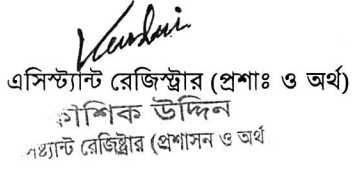 এসিস্ট্যান্ট রেজিস্ট্রার (প্রশাঃ ও অর্থ)
কৌশিক উদ্দিন
রেজিষ্ট্রার (প্রশাসন ও অর্থ